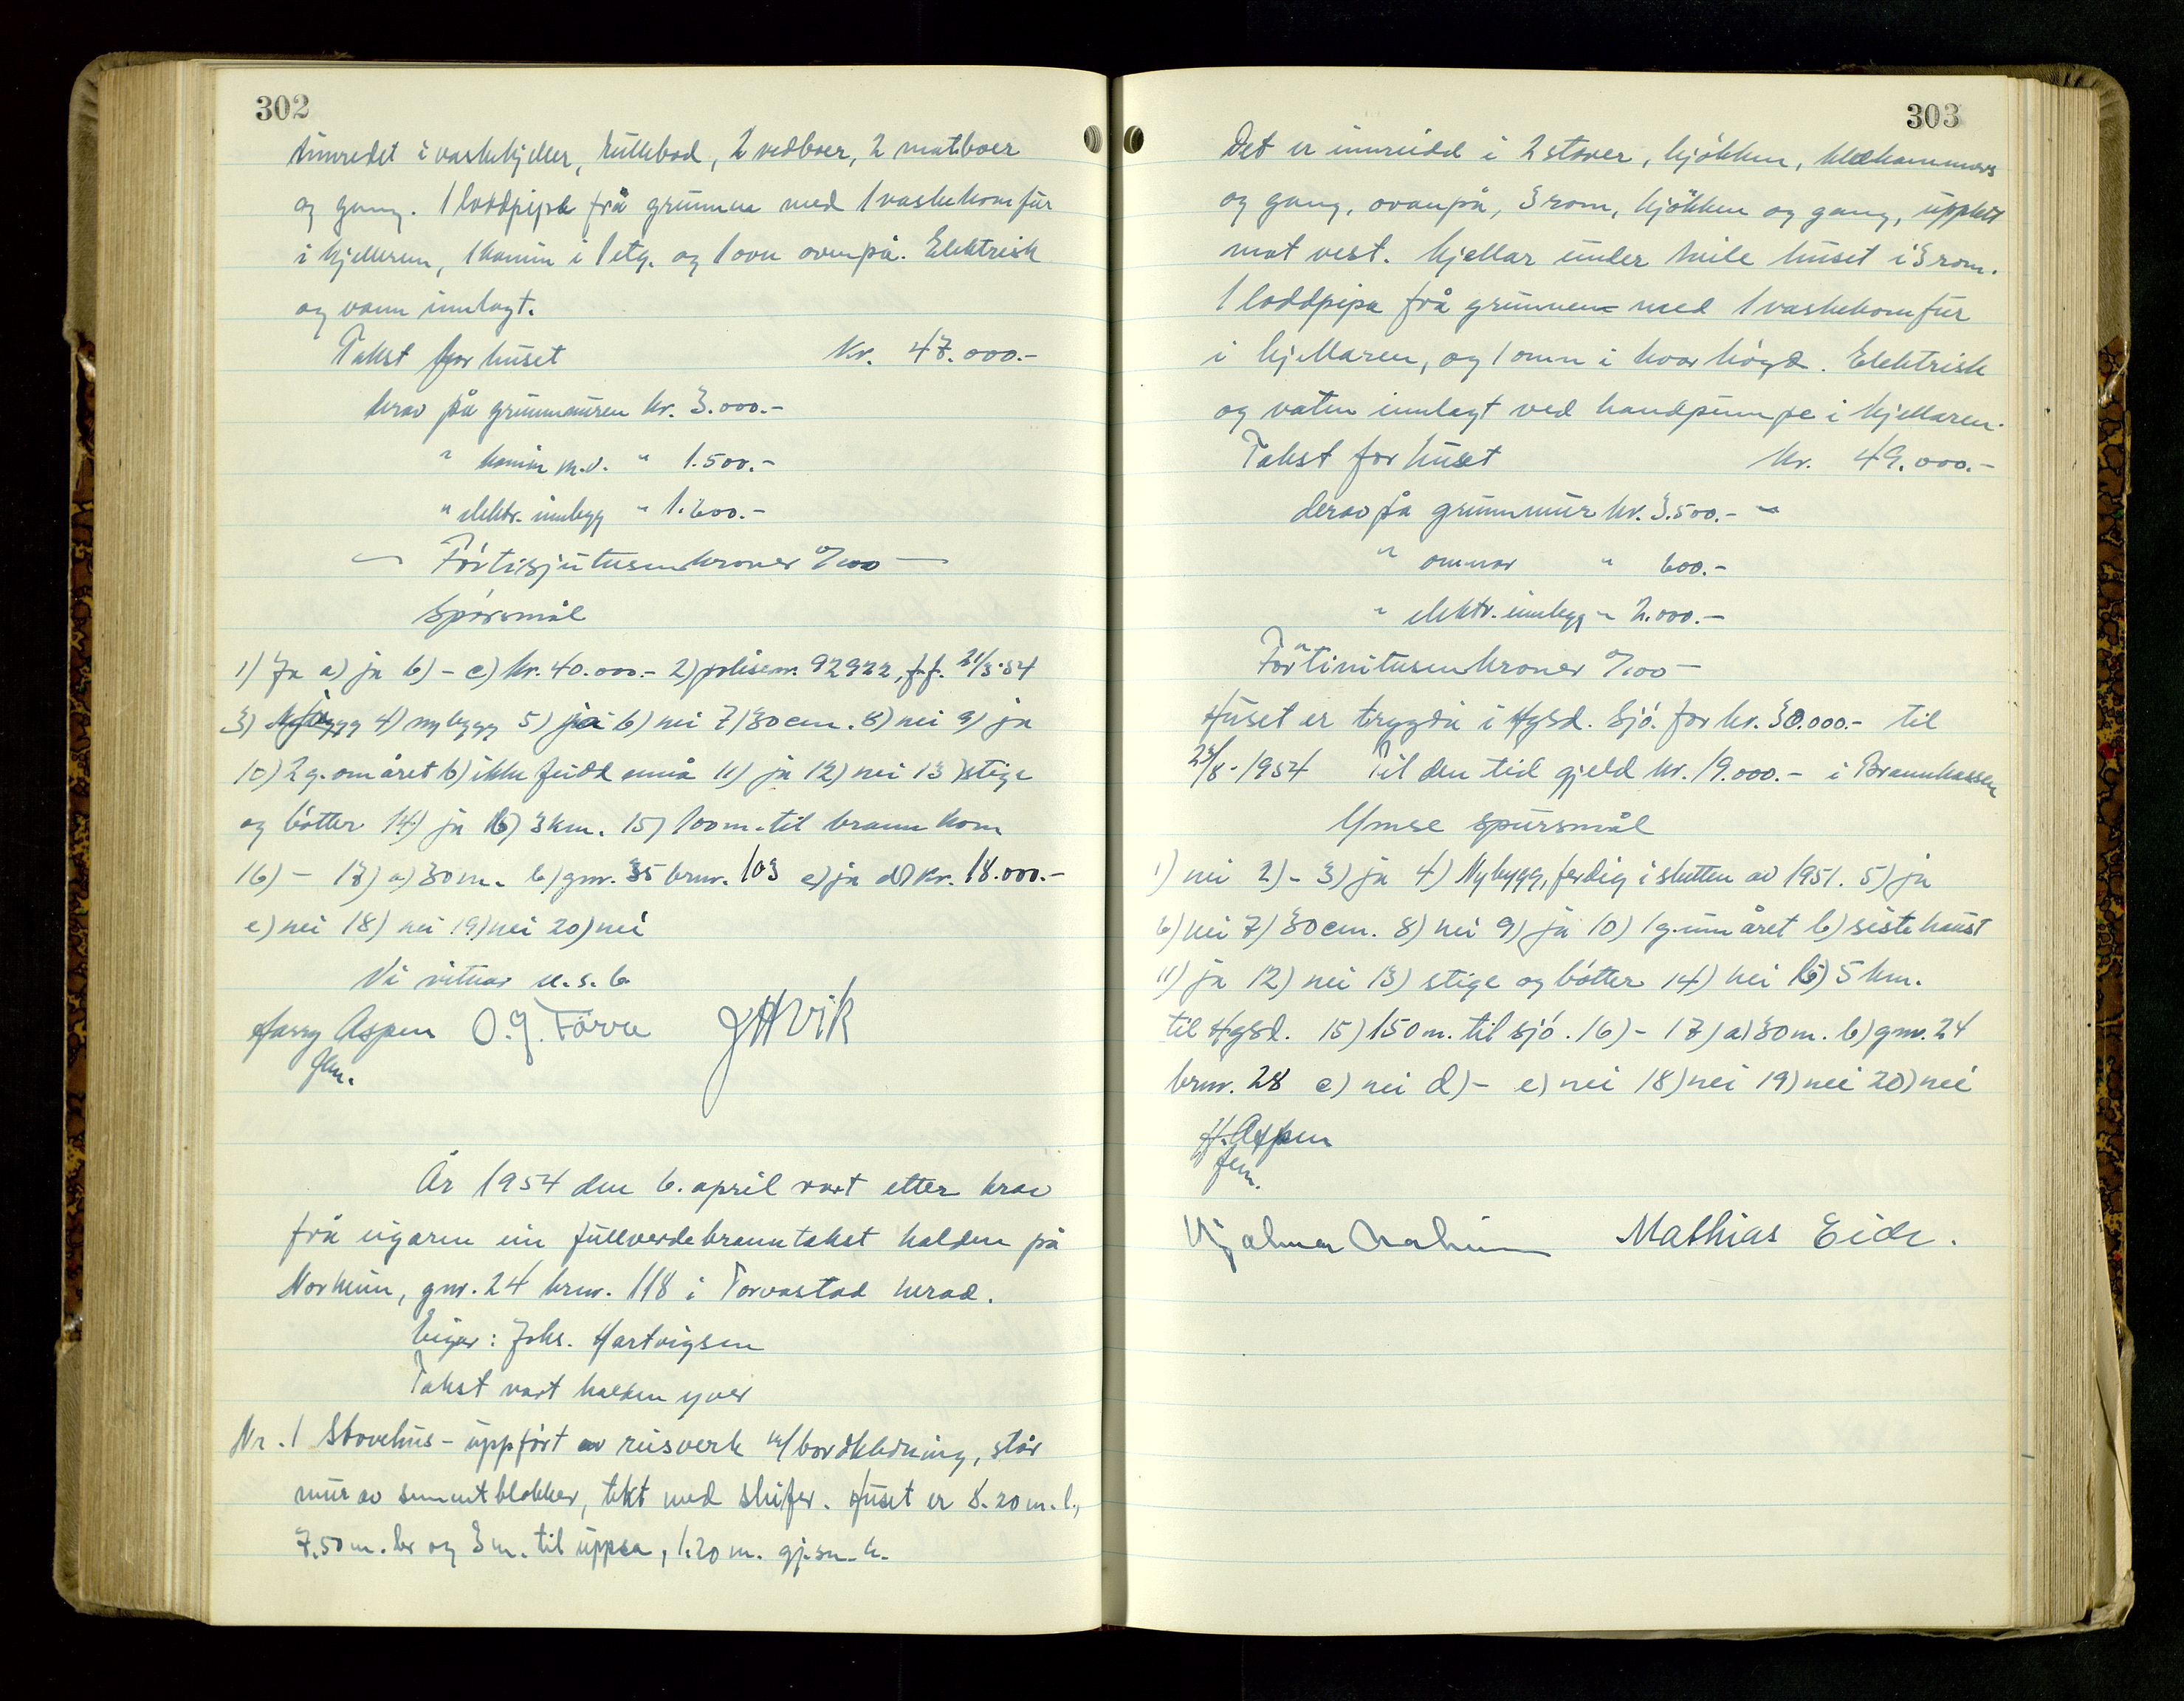 302
innredet i vaskekjeller, rullebod, 2 vedboer, 2 matboer
og gang. 1 loddpipe frå grunnen med 1 vaskekomfur
i kjelleren, 1 kamin i 1 etg. og 1 ovn ovenpå. Elektrisk
og vann innlagt.
Takst for huset kr. 47.000.-
herav på grunnmuren kr. 3.000.-
" kamin m.v. " 1.500.-
" elektr. innlegg " 1.600.-
— Førtisjutusenkroner 0/00 —
Spørsmål
1) Ja a) ja b) - c) kr. 40.000.- 2) polisenr. 92922, f.f. 21/3-54
3) 4) nybygg 5) ja 6) nei 7) 30 cm. 8) nei 9) ja
10) 2 g. om året b) ikke feidd ennå 11) ja 12) nei 13) stige
og bøtter 14) ja b) 3 km. 15) 100 m. til brann kom
16) - 17) a) 30 m. b) gnr. 35 brnr. 103 c) ja d) kr. 18.000.-
e) nei 18) nei 19) nei 20) nei
Vi vitnar u.s.b.
Harry Aspen O. J. Førre JHVik
fm.
År 1954 den 6. april vart etter krav
frå eigaren ein fullverdebranntakst halden på
Norheim, gnr. 24 brnr. 118 i Torvastad herad.
Eigar: Johs. Hartvigsen
Takst vart halden yver
Nr. 1 Stovehus - uppført av reisverk m/bordkledning, står
mur av sementblokker, tekt med skifer. Huset er 8.20 m. l.,
7.50 m. br og 3 m. til uppsa, 1.20 m. gj.sn. h.
303
Det er innreidd i 2 stover, kjøkken, klekammers
og gang, ovanpå, 3 rom, kjøkken og gang, upplett
mot vest. Kjellar under heile huset i 3 rom.
1 loddpipa frå grunnen med 1 vaskekomfur
i kjellaren, og 1 omn i kvar høgd. Elektrisk
og vatn innlagt ved handpumpe i kjellaren.
Takst for huset kr. 49.000.-
derav på grunnmur kr. 3.500.-
" omnar " 600.-
" elektr. innlegg " 2.000.-
Førtinitusenkroner 0/00 -
Huset er trygda i Hgsd. Sjø. for kr. 30.000.- til
23/8-1954 Til den tid gjeld kr. 19.000.- i Brannkassen
Ymse spursmål
1) nei 2) - 3) ja 4) Nybygg, ferdig i slutten av 1951. 5) ja
6) nei 7) 30 cm. 8) nei 9) ja 10) 1 g. um året b) siste haust
11) ja 12) nei 13) stige og bøtter 14) nei b) 5 km.
til Hgsd. 15) 150 m. til sjø. 16) - 17) a) 30 m. b) gnr. 24
brnr. 28 c) nei d) - e) nei 18) nei 19) nei 20) nei
H. Aspen
fm.
Hjalmar Mathias Eide.